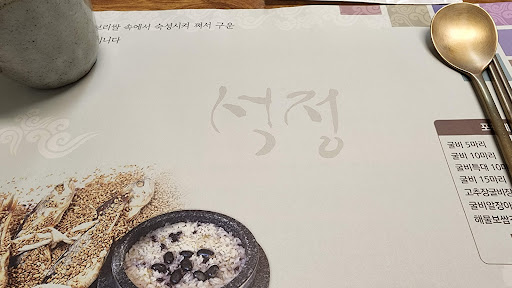 보리쌀 속에서 숙성시켜 쪄서 구운
입니다
석정
굴비 5미리
굴비 10미리
굴비특대 10미
굴비 15미리
고추장굴비장
굴비알장아
해물보쌈김